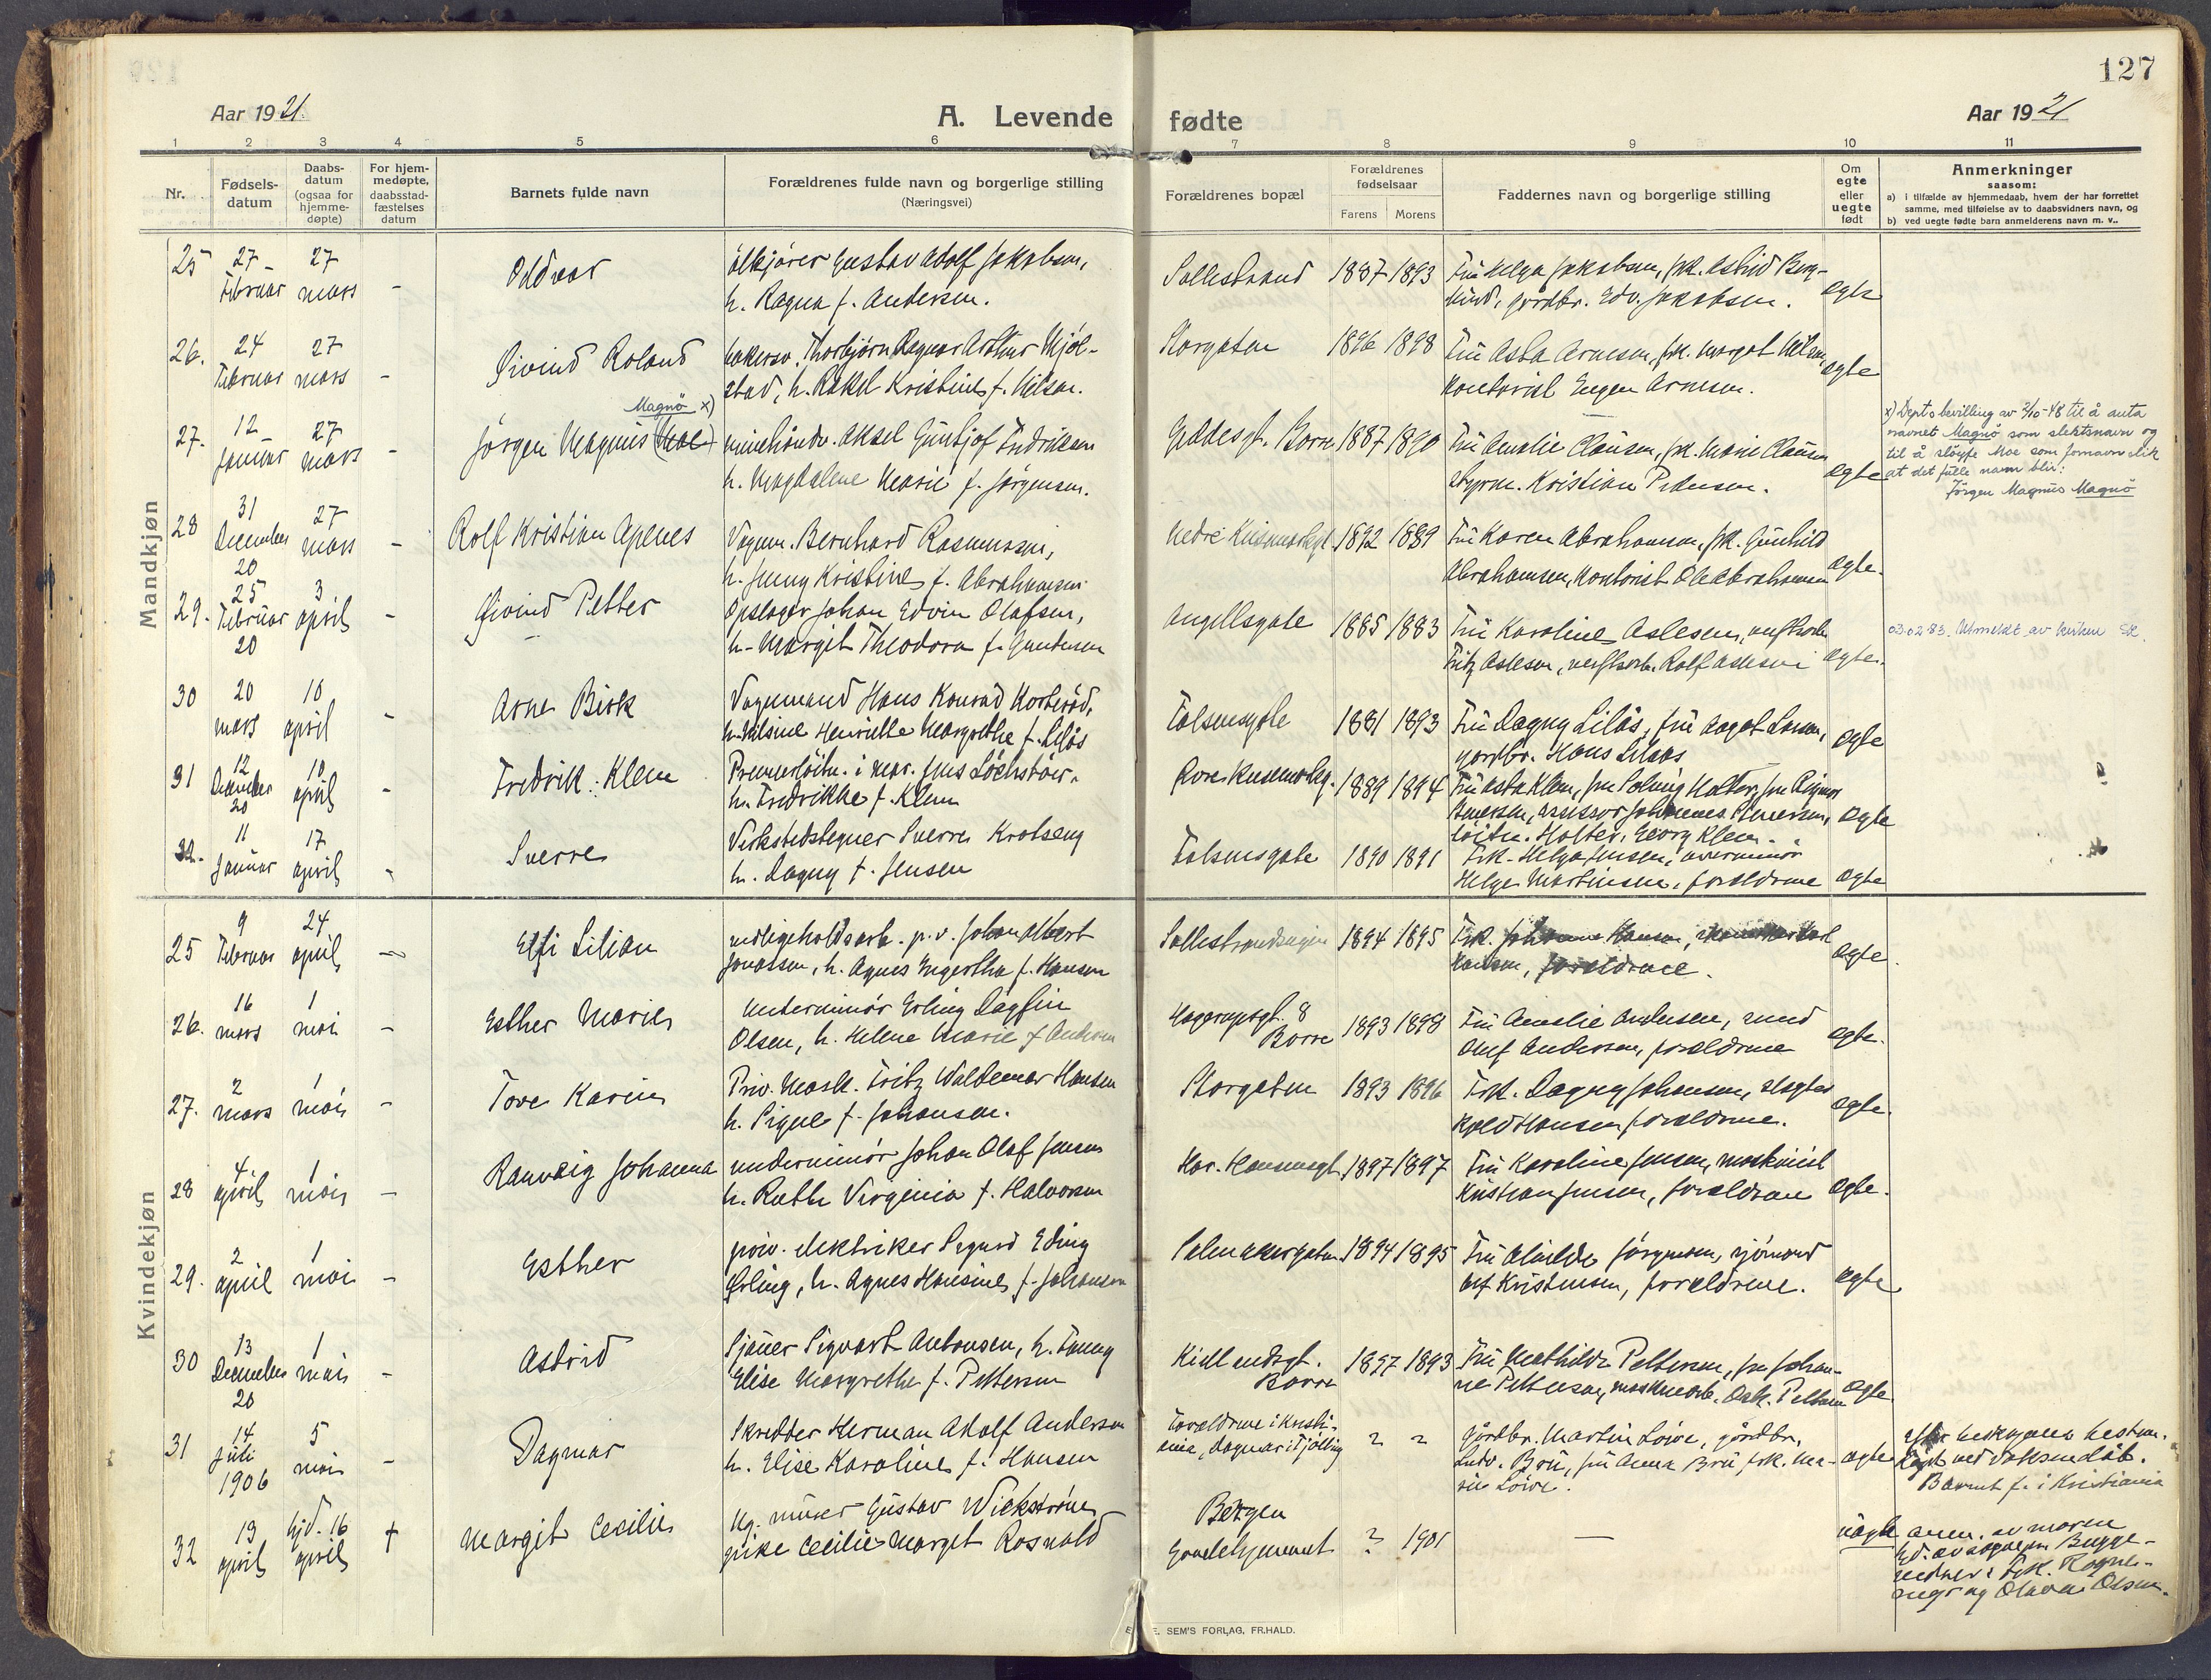 127
Aar 1921.
A. Levende
fødte
Aar 1921
1 2 3 4 5 6 7 8 9 10 11
Nr.
Fødsels-
datum
Daabs-
datum
(ogsaa for
hjemme-
døpte)
For hjem-
medøpte,
daabsstad-
fæstelses
datum
Barnets fulde navn
Forældrenes fulde navn og borgerlige stilling
(Næringsvei)
Forældrenes bopæl
Forældrenes
fødselsaar
Farens Morens
Faddernes navn og borgerlige stilling
Om
egte
eller
uegte
født
Anmerkninger
saasom:
a) i tilfælde av hjemmedaab, hvem der har forrettet
samme, med tilføielse av to daabsvidners navn, og
b) ved uegte fødte barn anmelderens navn m. v..
Mandkjøn
25 27 Februar 27 mars - Oddvar
Gustav Adolf Jakobsen,
h. Ragna f. Andersen.
Sollistrand 1887 1893
Fru Helga Jakobsen, frk. Astrid Berg-
lund, gårdbr. Edv. Jakobsen. egte
26. 24 Februar 27 mars - Øivind Roland
bakersv. Thorbjørn Ragnar Arthur Mjøl-
stad, h. Rakel Kristine f. Nilsen.
Storgaten 1896 1898
Fru Asta Arnesen, frk. Margot Nilsen,
kontorist Eugen Arnesen. egte
27. 12 Januar 27 mars - Jørgen Magnus (Moe) Magnø x)
Aksel Fridtjof Fredriksen
h. Magdalene Marie f. Jørgensen.
Geddesgt. Borre 1887 1890
Fru Amalie Clausen, frk. Marie Clausen
styrm. Kristian Pedersen. egte
x) Depts bevilling av 2/10-48 til å anta
navnet Magnø som slektsnavn og
til å sløyfe Moe som fornavn slik
at det fulle navn blir:
Jørgen Magnus Magnø
28 31 December 20 27 mars - Rolf Kristian Apenes
Vognm. Bernhard Rasmussen,
h. Jenny Kristine f. Abrahamsen
Nedre 1892 1889
Fru Karen Abrahamsen, frk. Gunhild
Abrahamsen, kontorist Ole Abrahamsen egte.
29. 25 Februar 20 3 april - Øivind Petter
Opslager Johan Edvin Olafsen,
h. Margit Theodora f. Gundersen
Angellsgate 1885 1883
Fru Karoline Aslesen, verftsarb.
Fritz Aslesen, verftsarb. Rolf Aslesen egte.
03.02.83. Utmeldt av kirken
30 20 mars 10 april - Arne Birk
Vognmand Hans Konrad Korterød,
h. Nilsine Henriette Margrethe f. Liljås
Falsensgate 1881 1893
Fru Dagny Lilås, fru Aagot Larsen,
gårdbr. Hans Lilaas egte
31 12 December 20 10 april - Fredrik Klem
Premierløitn. i mar. Jens Løchstøer,
h. Fredrikke f. Klem
1889 1894
Fru Asta Klem, fru Solveig Holter, fru Rigmor
assessor Johannes
løitn. Holter, Georg Klem. egte
32. 11 Januar 17 april - Sverre
Verkstedstegner Sverre
h. Dagny f. Jensen
Falsensgate 1890 1891
Frk. Helga Jensen, overminør
Helge Martinsen, forældrene egte
Kvindekjøn
25 9 Februar 24 april - Elfi Lilian
vedligeholdsarb. p.v. Johan Albert
Jonassen, h. Agnes Ingertha f. Hansen
1894 1895
Frk. Johanne Hansen,
Hansen, forældrene. egte.
26. 16 mars 1 mai - Esther Marie
Underminør Erling Dagfin
Olsen, h. Helene Marie f. Andersen
Hagerupsgt. 8
Borre 1893 1898
Fru Amalie Andersen,
Oluf Andersen, forældrene egte.
27. 2 mars 1 mai - Tove Karin
Priv. Mask. Fritz Waldemar Hansen
h. Signe f. Johansen.
Storgaten 1893 1896
Frk. Dagny Johansen, slagter
Hansen forældrene. egte.
28 4 april 1 mai - Ranveig Johanna
underminør Johan Olaf Jensen
h. Ruth Virginia f. Halvorsen
Hansensgt. 1897 1897
Fru Karoline Jensen, maskinist
Kristian Jensen, forældrene egte.
29. 2 april 1 mai - Esther
priv. elektriker Sigurd Eding
Ørling, h. Agnes Hansine f. Johansen
1894 1895
Fru Jørgensen, sjømand
Kristensen, forældrene. egte
30 13 December 20 1 mai - Astrid
Sjauer Sigvart Antonsen, h. Fanny
Elise Margrethe f. Pettersen
Borre 1897 1893
Fru Mathilde Pettersen, fru Johan-
ne Pettersen, maskinarb. Osk. Pettersen egte
31 14 Juli 1906 5 mai - Dagmar
Skredder Herman Adolf Andersen
h. Elise Karoline f. Hansen
Forældrene i Kristi-
ania, Dagmar i Tjølling ? ?
Gårdbr. Martin Løive, gårdbr.
Ludv. Bru, fru Anna Bru frk. Ma-
rie Løive. egte
ved voksendåb.
Barnet f. i Kristiania
32 13 april hjd. 16 april † Margit Cecilie
Ug. murer Gustav Wickstrøm
pike Cecilie Margit Rosvold
Bergen
? 1901
— uegte
anm. av moren
Olava Olsen.
E. SEM'S FORLAG, FR.HALD.